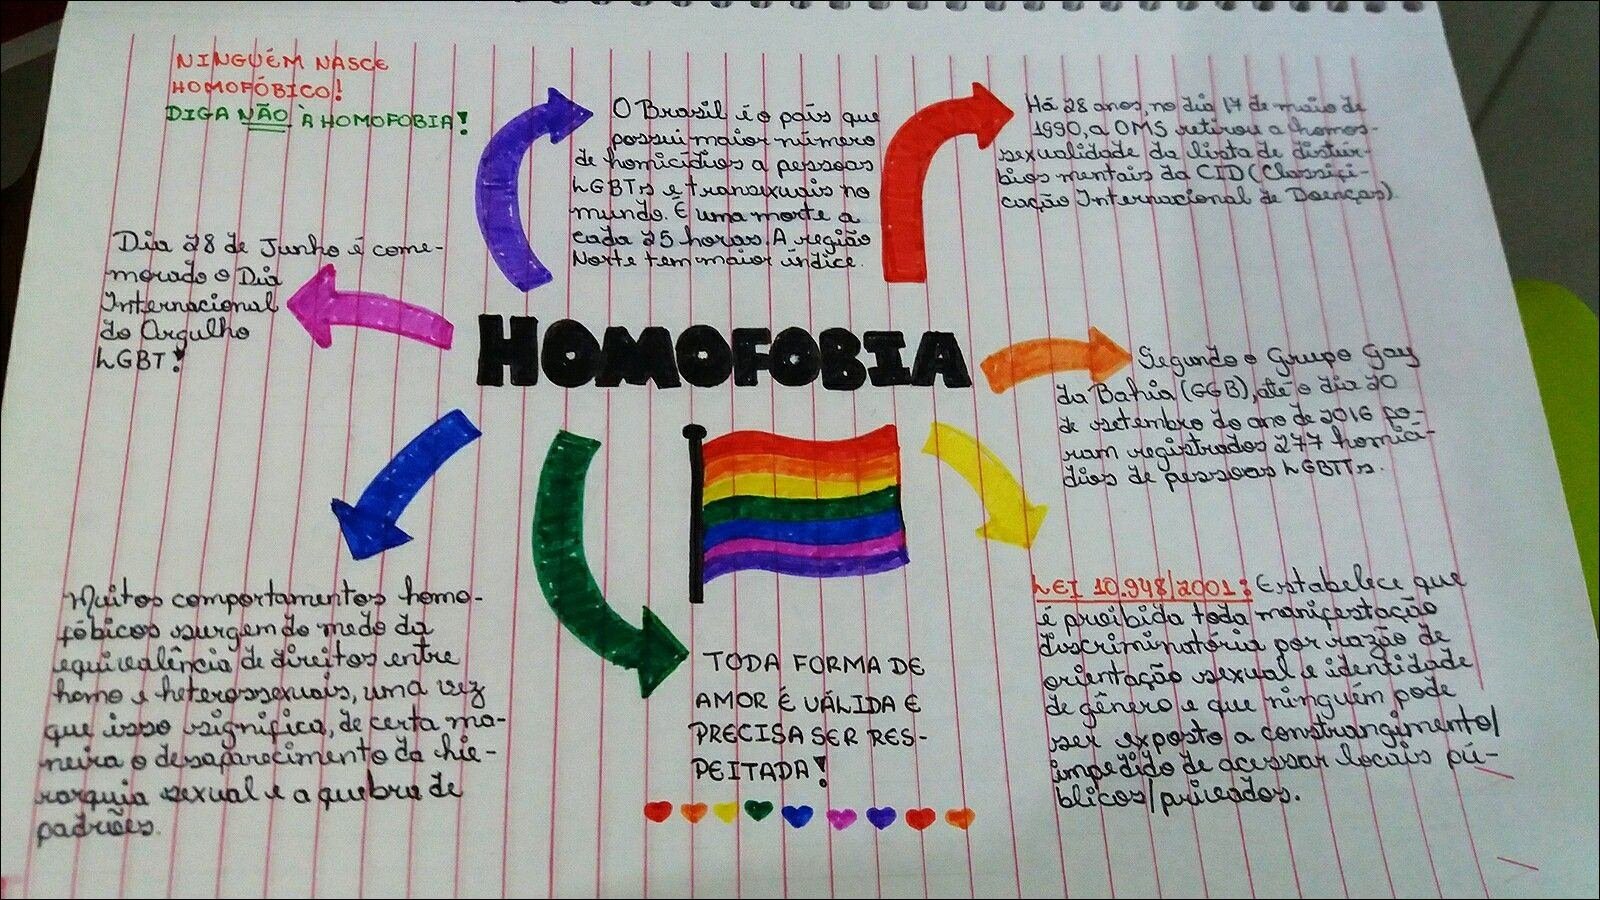 NINGUÉM NASCE
HOMOFÓBICO!
DIGA NÃO À HOMOFOBIA!
O Brasil é o país que
possui maior número
de homicídios a pessoas
LGBTs e transexuais no
mundo. É uma morte a
cada 25 horas. A região
Norte tem maior índice.
Há 28 anos, no dia 17 de maio de
1990, a OMS retirou a homos-
sexualidade da lista de distúr-
bios mentais da CID (Classifi-
cação Internacional de Doenças).
Dia 28 de Junho é come-
morado o Dia
Internacional
do Orgulho
LGBT!
HOMOFOBIA
Segundo o Grupo Gay
da Bahia (GGB), até o dia 20
de setembro do ano de 2016 fo-
ram registrados 277 homicí-
dios de pessoas LGBTTs.
Muitos comportamentos homo-
fóbicos surgem do medo da
equivalência de direitos entre
homo e heterossexuais, uma vez
que isso significa, de certa ma-
neira o desaparecimento da hie-
rarquia sexual e a quebra de
padrões.
TODA FORMA DE
AMOR É VÁLIDA E
PRECISA SER RES-
PEITADA!
LEI 10.948/2001: Estabelece que
é proibida toda manifestação
discriminatória por razão de
orientação sexual e identidade
de gênero e que ninguém pode
ser exposto a constrangimento/
impedido de acessar locais pú-
blicos/privados.